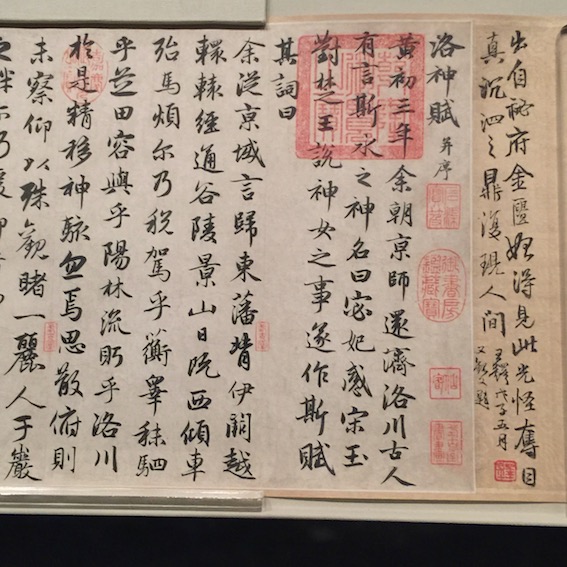 出自秘府金匱始得見此光怪奪目
真沉泗之鼎復現人間
洛神賦 并序
黃初三年余朝京師還濟洛川古人
有言斯水之神名曰宓妃感宋玉
對楚王說神女之事遂作斯賦
其詞曰
余從京域言歸東藩背伊闕越
轘轅經通谷陵景山日既西傾車
殆馬煩尔乃稅駕乎蘅皋秣駟
乎芝田容與乎陽林流眄乎洛川
於是精移神駭忽焉思散俯則
未察仰以殊觀睹一麗人于巖
之畔尔乃援
御書房鑑藏寶